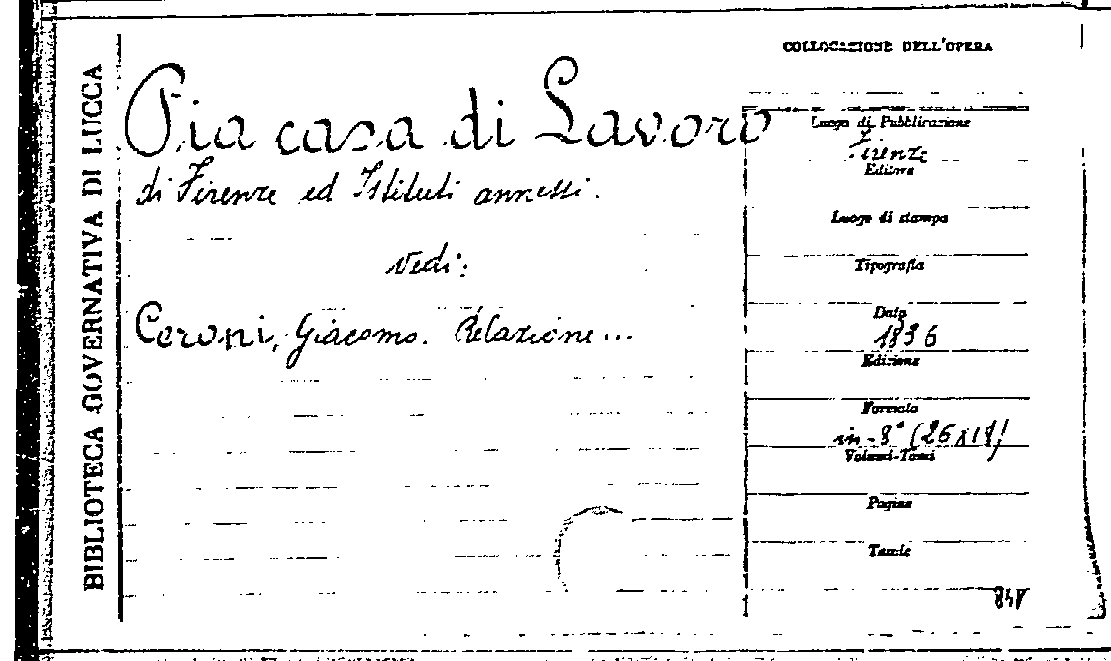 BIBLIOTECA GOVERNATIVA DI LUCCA
Pia casa di Lavoro
di Firenze ed Istituti annessi.
vedi:
Ceroni, Giacomo. Relazione...
COLLOCAZIONE DELL'OPERA
Luogo di Pubblicazione
Firenze
Editore
Luogo di stampa
Tipografia
Data
1896
Edizione
Formato
in-8° (26x18)
Volumi-Tomi
Pagine
Tavole